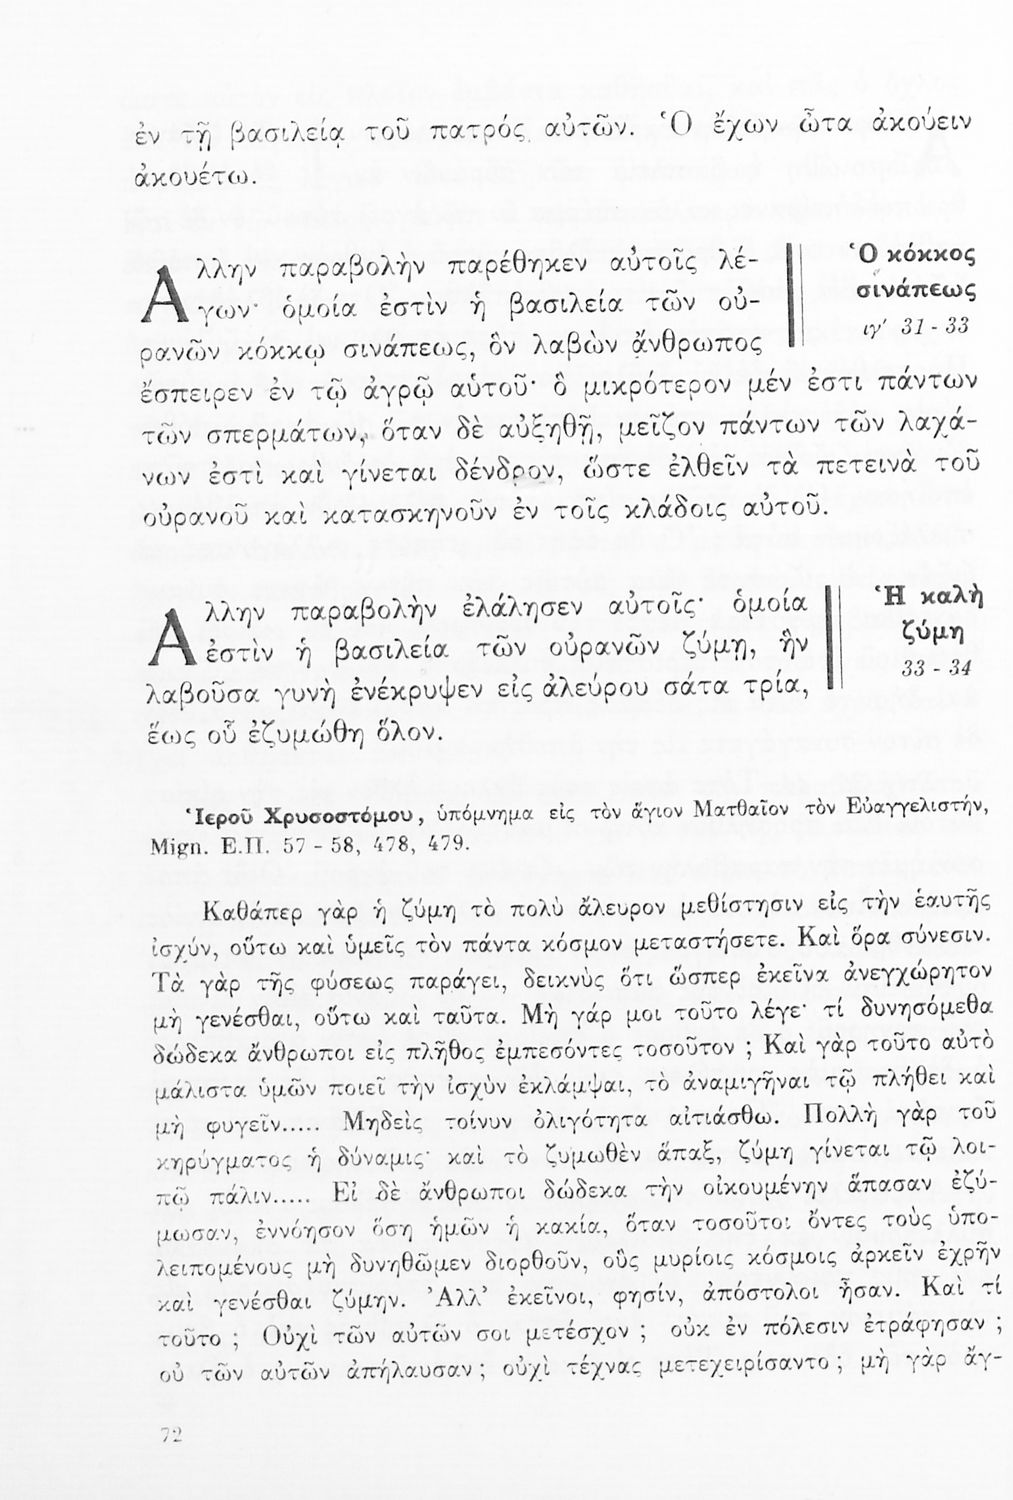 ἐν τῇ βασιλείᾳ τοῦ πατρός αὐτῶν. Ὁ ἔχων ὦτα ἀκούειν
ἀκουέτω.
Αλλην παραβολὴν παρέθηκεν αὐτοῖς λέ-
γων· ὁμοία ἐστὶν ἡ βασιλεία τῶν οὐ-
ρανῶν κόκκῳ σινάπεως, ὃν λαβὼν ἄνθρωπος
ἔσπειρεν ἐν τῷ ἀγρῷ αὑτοῦ· ὃ μικρότερον μέν ἐστι πάντων
τῶν σπερμάτων, ὅταν δὲ αὐξηθῇ, μεῖζον πάντων τῶν λαχά-
νων ἐστὶ καὶ γίνεται δένδρον, ὥστε ἐλθεῖν τὰ πετεινὰ τοῦ
οὐρανοῦ καὶ κατασκηνοῦν ἐν τοῖς κλάδοις αὐτοῦ.
Ὁ κόκκος
σινάπεως
ιγʹ 31 - 33
Αλλην παραβολὴν ἐλάλησεν αὐτοῖς· ὁμοία
ἐστὶν ἡ βασιλεία τῶν οὐρανῶν ζύμῃ, ἣν
λαβοῦσα γυνὴ ἐνέκρυψεν εἰς ἀλεύρου σάτα τρία,
ἕως οὗ ἐζυμώθη ὅλον.
Ἡ καλὴ
ζύμη
33 - 34
Ἱεροῦ Χρυσοστόμου, ὑπόμνημα εἰς τὸν ἅγιον Ματθαῖον τὸν Εὐαγγελιστήν,
Mign. Ε.Π. 57 - 58, 478, 479.
Καθάπερ γὰρ ἡ ζύμη τὸ πολὺ ἄλευρον μεθίστησιν εἰς τὴν ἑαυτῆς
ἰσχύν, οὕτω καὶ ὑμεῖς τὸν πάντα κόσμον μεταστήσετε. Καὶ ὅρα σύνεσιν.
Τὰ γὰρ τῆς φύσεως παράγει, δεικνὺς ὅτι ὥσπερ ἐκεῖνα ἀνεγχώρητον
μὴ γενέσθαι, οὕτω καὶ ταῦτα. Μὴ γάρ μοι τοῦτο λέγε· τί δυνησόμεθα
δώδεκα ἄνθρωποι εἰς πλῆθος ἐμπεσόντες τοσοῦτον ; Καὶ γὰρ τοῦτο αὐτὸ
μάλιστα ὑμῶν ποιεῖ τὴν ἰσχὺν ἐκλάμψαι, τὸ ἀναμιγῆναι τῷ πλήθει καὶ
μὴ φυγεῖν..... Μηδεὶς τοίνυν ὀλιγότητα αἰτιάσθω. Πολλὴ γὰρ τοῦ
κηρύγματος ἡ δύναμις· καὶ τὸ ζυμωθὲν ἅπαξ, ζύμη γίνεται τῷ λοι-
πῷ πάλιν..... Εἰ δὲ ἄνθρωποι δώδεκα τὴν οἰκουμένην ἅπασαν ἐζύ-
μωσαν, ἐννόησον ὅση ἡμῶν ἡ κακία, ὅταν τοσοῦτοι ὄντες τοὺς ὑπο-
λειπομένους μὴ δυνηθῶμεν διορθοῦν, οὓς μυρίοις κόσμοις ἀρκεῖν ἐχρῆν
καὶ γενέσθαι ζύμην. Ἀλλ' ἐκεῖνοι, φησίν, ἀπόστολοι ἦσαν. Καὶ τί
τοῦτο ; Οὐχὶ τῶν αὐτῶν σοι μετέσχον ; οὐκ ἐν πόλεσιν ἐτράφησαν ;
οὐ τῶν αὐτῶν ἀπήλαυσαν ; οὐχὶ τέχνας μετεχειρίσαντο ; μὴ γὰρ ἄγ-
72